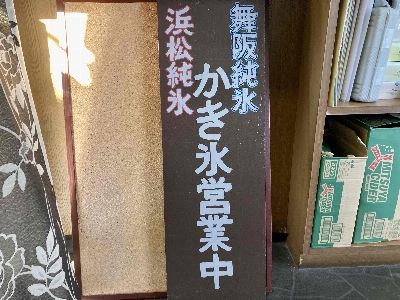 舞阪純氷
浜松純氷
かき氷営業中
MITSUYA
CIDER